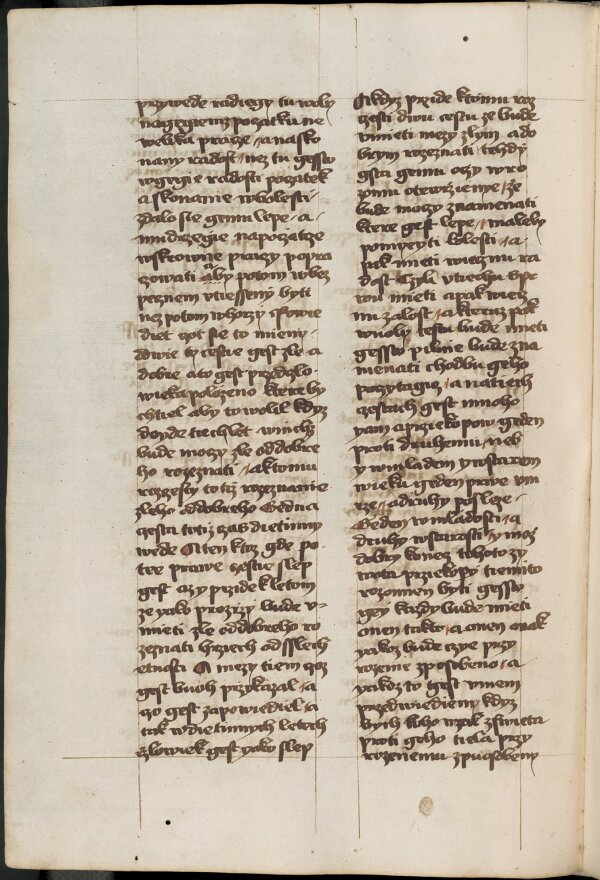 przywede radiegy tu woly
nagegiemz pocatku ne
welika pracze / a nasko
nany radost / nez tu gessto
wgegie radosti pocatek
a skonanie wbolesti
zdalo sie gemu lepe / a
mudrzegie napoczatze
wskrowne praczy popra
czowati aby potom wbez
peznem vtiesseny bytt
nez potom whorzy
diet qot sie to mieny
dwie ty cestie gest zle a
dobre a to gest przedczlo
wieka polozeno ktere by
chtiel aby to wolil kdyz
dogde tiech let winich
bude moczy zle oddobre
ho rozeznati / aktomu
rozczesty totiz rozeznanie
zleho oddobreho Gedna
czesta totiz zas dietinny
wede A ten kaz gde po
tre prawe czestie slep
gest azy przide kletom
ze yako prozrzy bude v
mieti zle oddobreho ro
zeznati hrziech od sslech
etnosti A mezy tiem czoz
gest buoh przykazal / a
czo gest zapowiediel / a
tak wdietinnych letech
czlowiek gest yako slep
A kdyz przide ktomu roz
czesti dwu cestu ze bude
vmieti mezy zlym a do
brym rozeznati / tehdy
gsta gemu oczy wro
zomu otewrzienye / ze
bude moczy znamenati
ktere gest lepe / maleby
pomyeyti bolesti / a
pak mieti wiecznu ra
dost Czyli vtiechu tpr
wu mieti a pak wiecz
nu zalost / a kteruz pak
wuoly cestu bude mieti
gessto pilnie bude zna
menati chodbu geho
poczytagie / a natiech
czestach gest mnoho
yam a przickopow geden
proti druhemu / neb
y wmladem y wstarem
wieku geden prwe vm
rze / a druhy posleze
Geden wmladosti / a
druhy wstarosti / y moz
dobry konecz tohoto zy
wota przickopy tiemito
rozomien byti gessto
gey kazdy bude mieti
onen takto / a onen onak
yakoz bude czye przy
rozenie zposobeno / a
yakoz to gest vniem
przedwiedieny kdyz
bych koho wzal zswieta
proti geho tiela przy
rozenemu zpuosobeny